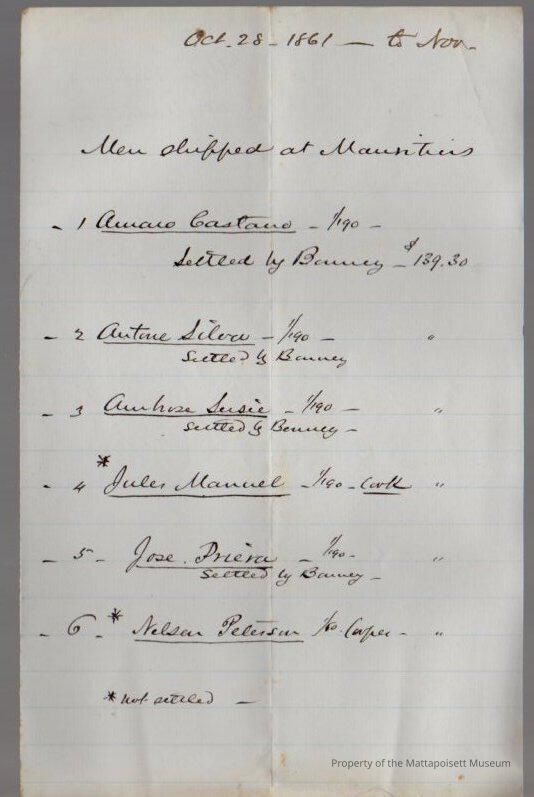 Oct. 28 - 1861 — to Nov.
Men shipped at Mauritius
- 1 Amaro Castano - 1/190 -
Settled by Bonney - $139.30
- 2 Antone Silva - 1/190 - "
Settled by Bonney
- 3 Ambrose Susie - 1/190 - "
Settled by Bonney -
- 4 * Jules Manuel - 1/190 - Cook "
- 5 - Jose. Priera - 1/190 - "
Settled by Bonney -
- 6 - * Nelson Peterson Cooper - "
* not settled -
Property of the Mattapoisett Museum